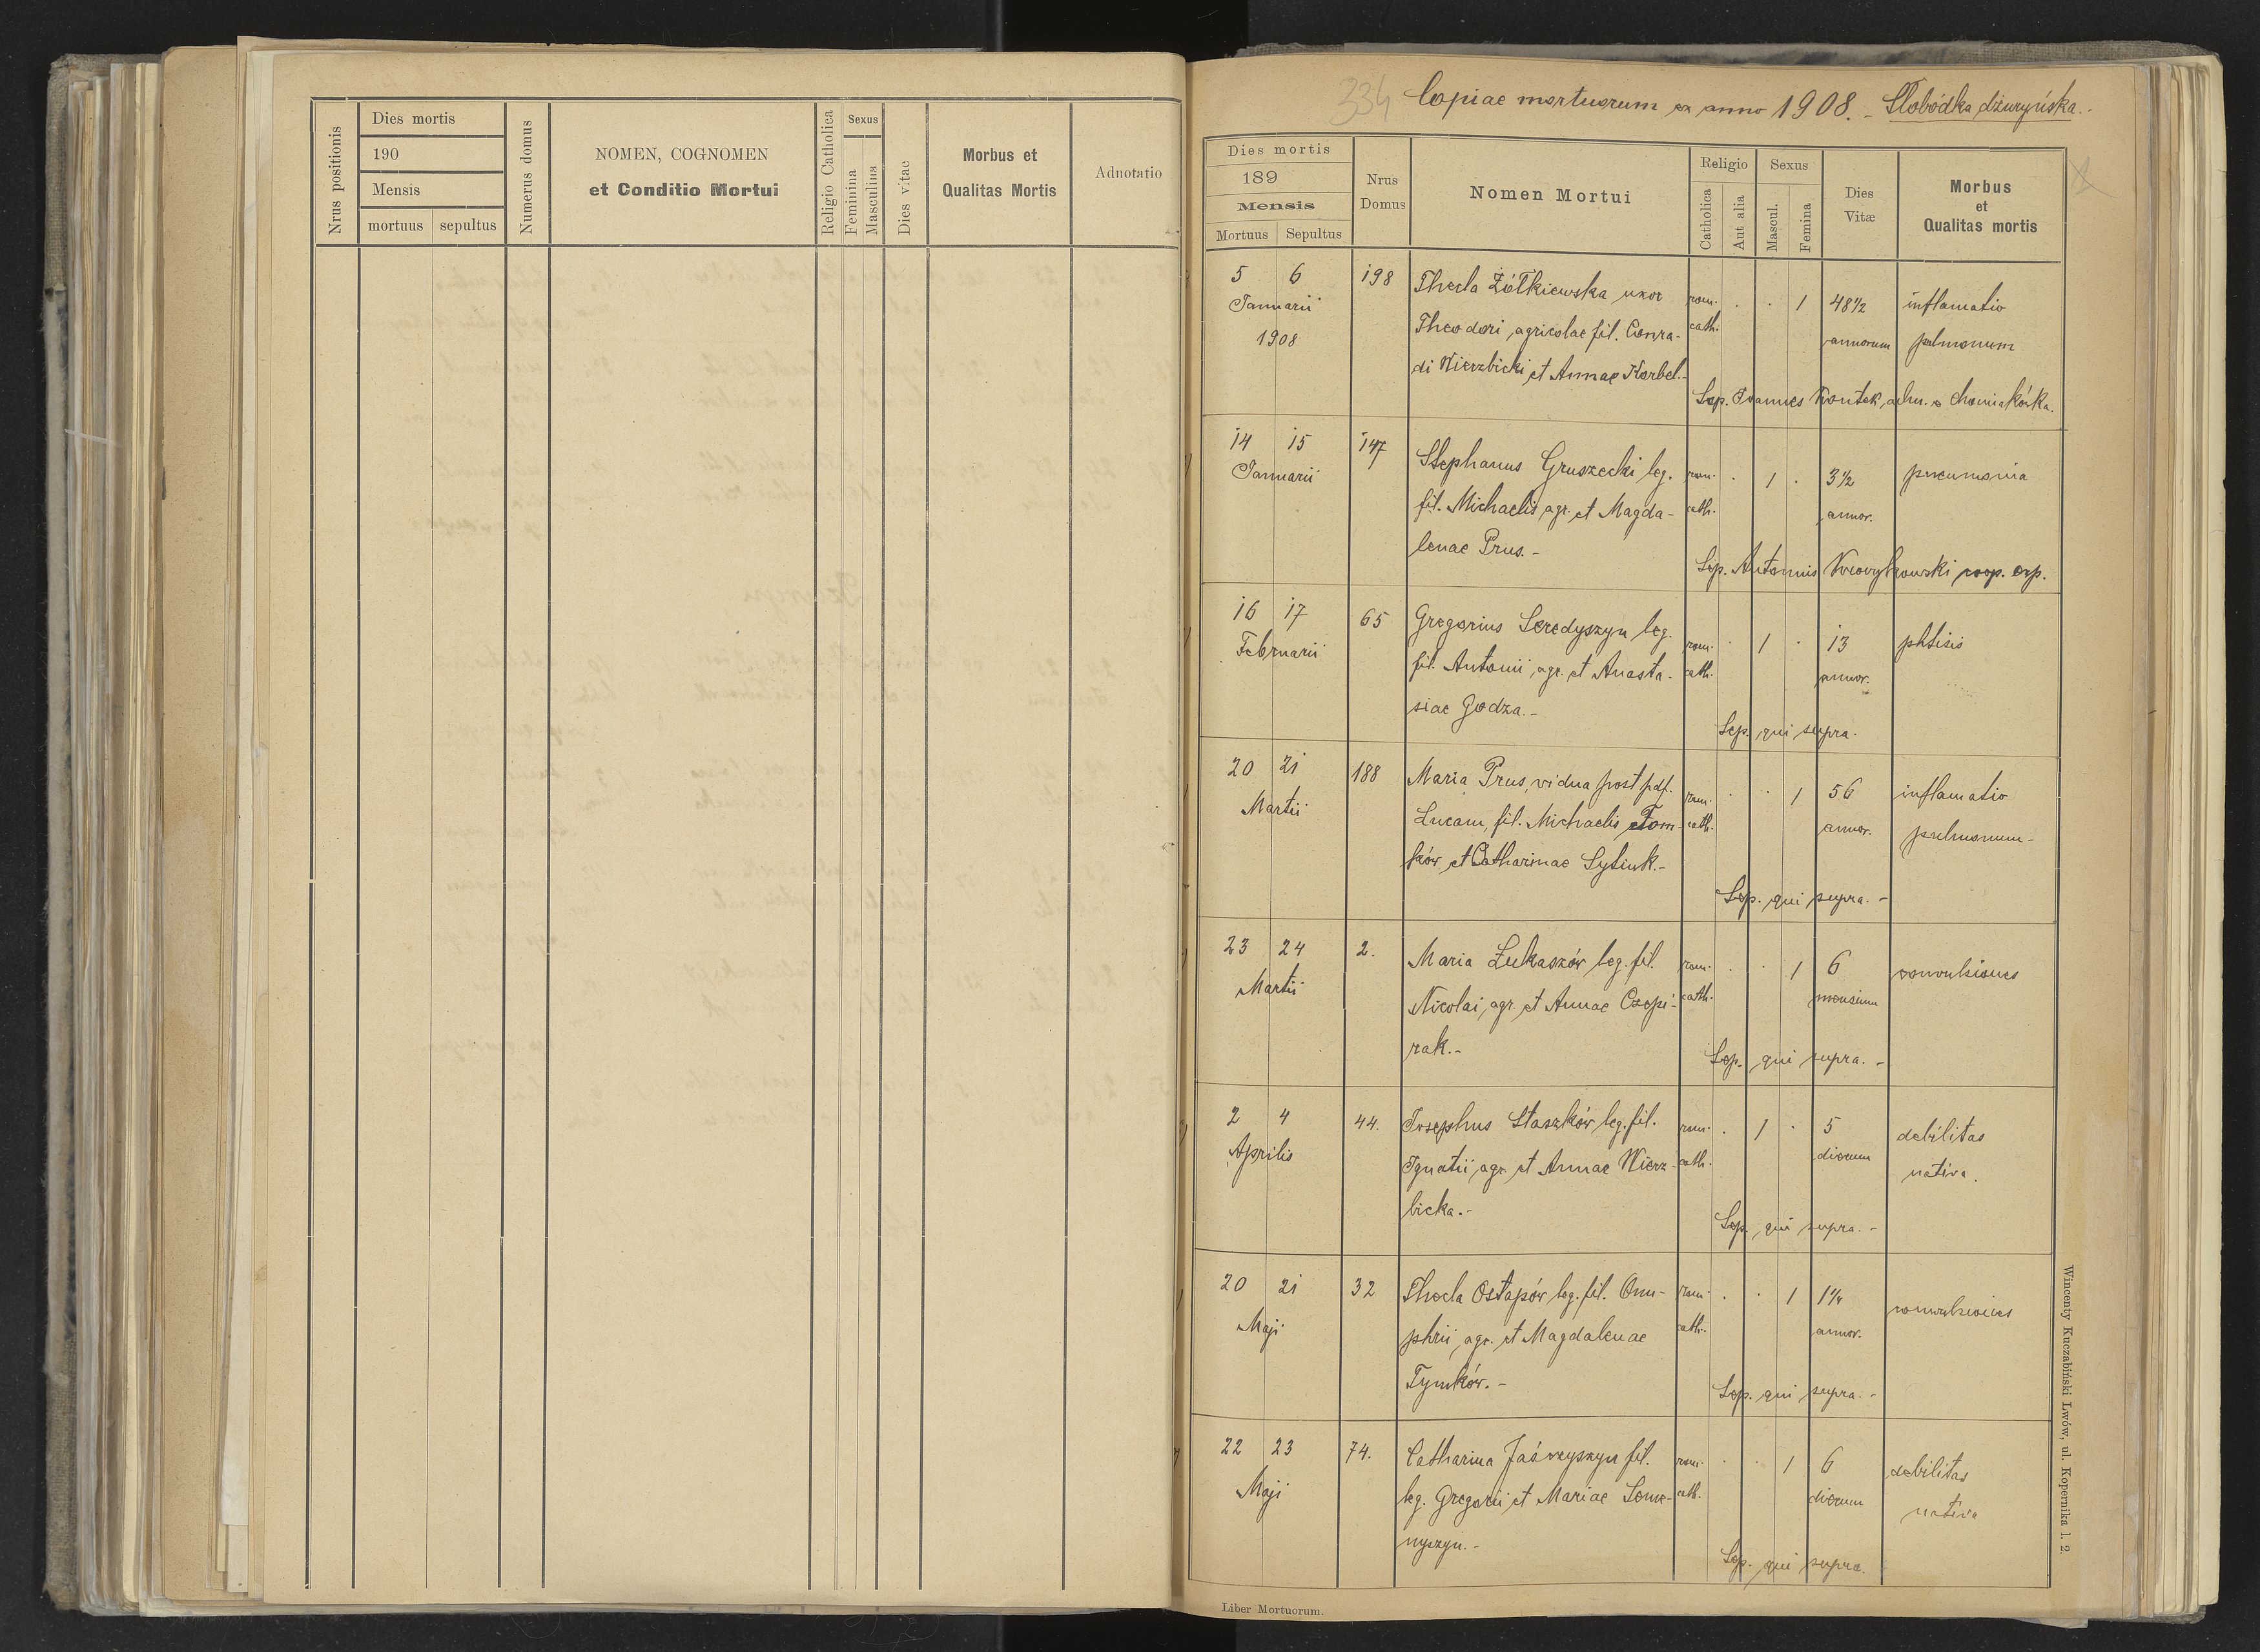 Nrus positionis
Dies mortis
190
Mensis
mortuus sepultus
Numerus domus
NOMEN, COGNOMEN
et Conditio Mortui
Religio Catholica
Sexus
Feminina
Masculina
Dies vitae
Morbus et
Qualitas Mortis
Adnotatio
334 Copiae mortuorum ex anno 1908. - Słobódka dżuryńska.-
Dies mortis
189
Mensis
Mortuus Sepultus
Nrus
Domus
Nomen Mortui
Religio
Catholica
Aut alia
Sexus
Mascul.
Femina
Dies
Vitæ
Morbus
et
Qualitas mortis
5 6 198 Thecla Żółkiewska uxor rom. . . 1 48 1/2 inflamatio
Januarii Theodori, agricolae fil. Conra- cath. annorum pulmonum
1908 di Wierzbicki et Annae Korbel.-
Sep. Joannes Kontek, adm. Chomiakówka.
14 15 147 Stephanus Gruszecki leg. rom. . 1 . 3 1/2 pneumonia
Januarii fil. Michaelis, agr. et Magda- cath. annor.
lenae Prus.-
Sep. Antonius coop. exp.
16 17 65 Gregorius Seredyszyn leg. rom. . 1 . 13 phtisis
Februarii fil. Antonii, agr. et Anasta- cath. annor.
siae Godza.-
Sep. qui supra.
20 21 188 Maria Prus, vidua post pdf. rom. . . 1 56 inflamatio
Martii Lucam, fil. Michaelis Tom- cath. annor. pulmonum-
ków et Catharinae Sytnik.-
Sep. qui supra.-
23 24 2. Maria Łukaszów leg. fil. rom. . . 1 6 convulsiones
Martii Nicolai, agr. et Annae Czepi- cath. mensium
rak.-
Sep. qui supra.-
2 4 44. Josephus Staszków leg. fil. rom. . 1 . 5 debilitas
Aprilis Ignatii, agr. et Annae Wierz- cath. dierum nativa.
bicka.-
Sep. qui supra.-
20 21 32 Thecla Ostapów leg. fil. Onu- rom. . . 1 1 1/4 convulsiones
Maji phrii, agr. et Magdalenae cath. annor.
Tymków.-
Sep. qui supra.-
22 23 74. Catharina Jaśczyszyn fil. rom. . . 1 6 debilitas
Maji leg. Gregorii et Mariae Seme- cath. dierum nativa
nyszyn.-
Sep. qui supra.
Wincenty Kuczabiński Lwów, ul. Kopernika l. 2.
Liber Mortuorum.